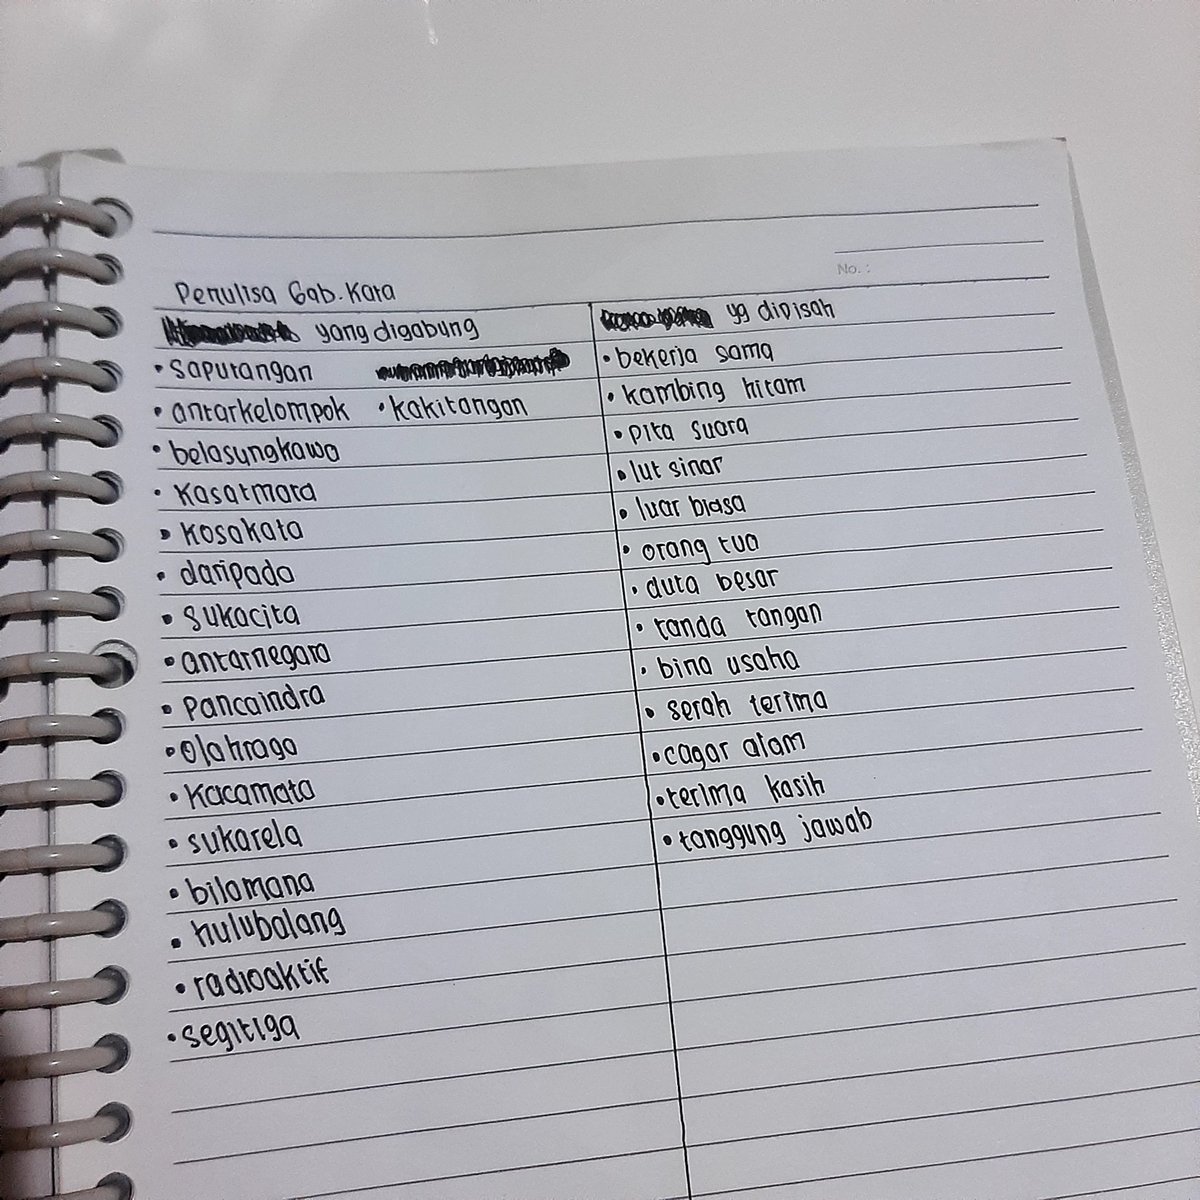 No. :
Penulisa Gab. Kata
yang digabung
• saputangan
• antarkelompok • kakitangan
• belasungkawa
• Kasatmata
• kosakata
• daripada
• sukacita
• antarnegara
• Pancaindra
• Olahraga
• Kacamata
• sukarela
• bilamana
• hulubalang
• radioaktif
• segitiga
yg dipisah
• bekerja sama
• kambing hitam
• pita suara
• lut sinar
• luar biasa
• orang tua
• duta besar
• tanda tangan
• bina usaha
• serah terima
• cagar alam
• terima kasih
• tanggung jawab